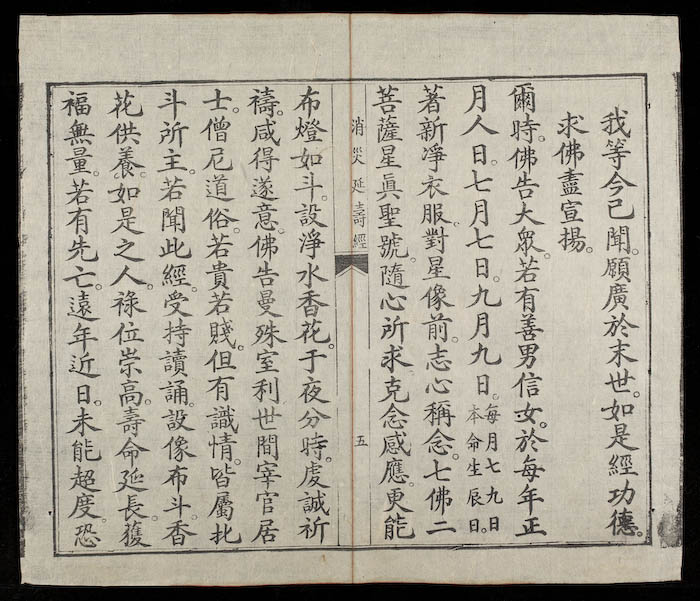 我等今已聞。願廣於末世。如是經功德。
求佛盡宣揚。
爾時。佛告大眾。若有善男信女。於每年正
月人日。七月七日。九月九日。
每月七九日
本命生辰日。
著新淨衣服。對星像前。志心稱念。七佛二
菩薩星真聖號。隨心所求。克念感應。更能
消災延壽經
五
布燈如斗。設淨水香花。于夜分時。虔誠祈
禱。咸得遂意。佛告曼殊室利。世間宰官居
士。僧尼道俗。若貴若賤。但有識情。皆屬北
斗所主。若聞此經。受持讀誦。設像布斗。香
花供養。如是之人。祿位崇高。壽命延長。獲
福無量。若有先亡。遠年近日。未能超度。恐